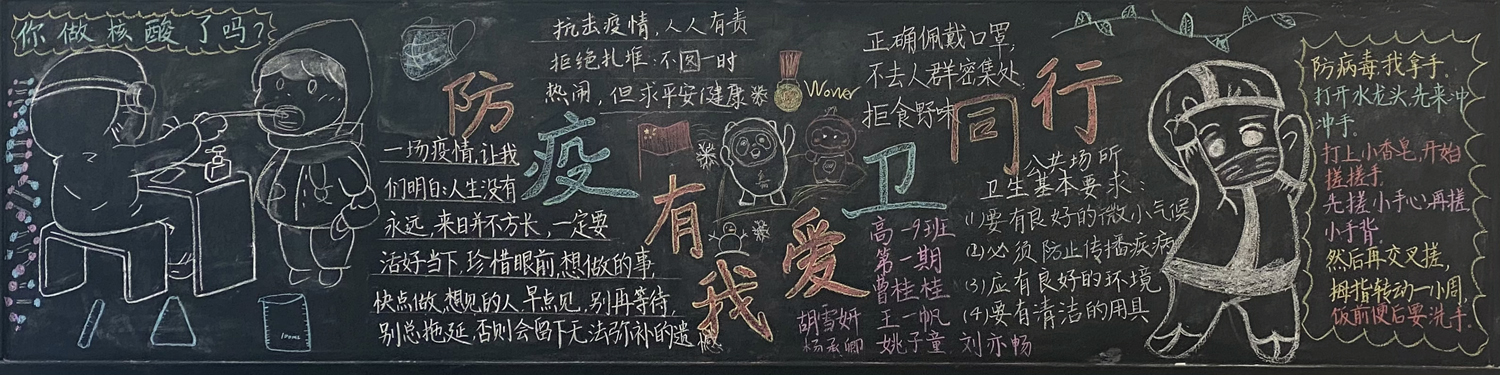 你做核酸了吗?
防疫有我
爱卫同行
一场疫情,让我
们明白:人生没有
永远,来日并不方长,一定要
活好当下,珍惜眼前,想做的事
快点做,想见的人早点见,别再等待,
别总拖延,否则会留下无法弥补的遗憾
100mL
抗击疫情,人人有责
拒绝扎堆:不图一时
热闹,但求平安健康
Wonver
正确佩戴口罩,
不去人群密集处,
拒食野味
高一9班
第一期
曾桂桂
胡雪妍 王一帆
杨承卿 姚子童 刘亦畅
公共场所
卫生基本要求:
(1)要有良好的微小气候
(2)必须防止传播疾病
(3)应有良好的环境
(4)要有清洁的用具
防病毒,我拿手.
打开水龙头,先来冲
冲手.
打上小香皂,开始
搓搓手
先搓小手心,再搓
小手背
然后再交叉搓,
拇指转动一小周,
饭前便后要洗手.